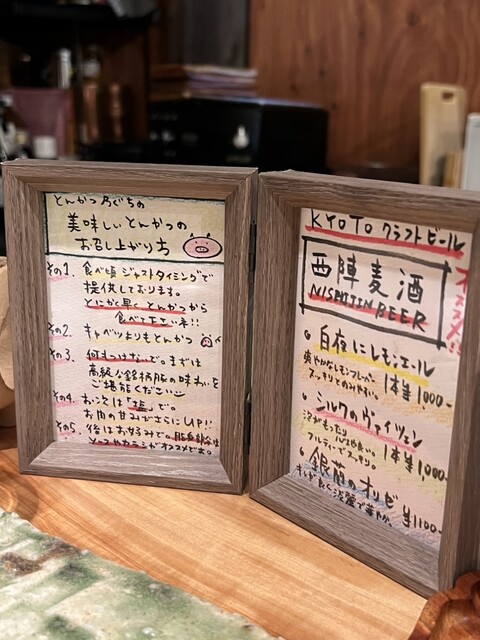 とんかつ のぐちの
美味しいとんかつの
お召し上がり方
その1. 食べ頃ジャストタイミングで
提供しております。
とにかく早くとんかつから
食べて下さいネ!!
その2. キャベツよりもとんかつ
その3. 何もつけないで。まずは
高級な銘柄豚の味わいを
ご堪能ください
その4. お次は「塩」で。
お肉の甘みがさらにUP!!
その5. 後はお好みで。脂身部分は
ソースやカラシがオススメです。
KYOTO クラフトビール
オススメ!!
西陣麦酒
NISHIJIN BEER
白夜にレモンエール
爽やかなレモンフレーバー
スッキリとのみやすい。
1本 ¥1,000-
シルクのヴァイツェン
泡がもったり
フルーティーでスッキリ。
1本 ¥1,000-
銀菊のオリゼ
¥1100-